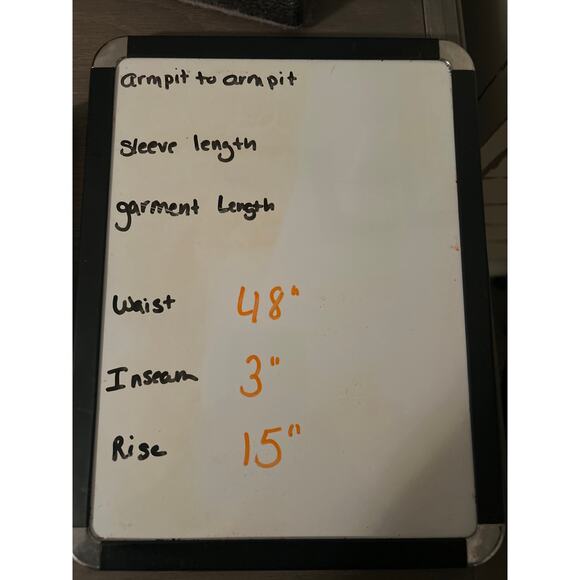 armpit to armpit
sleeve length
garment Length
Waist 48"
Inseam 3"
Rise 15"